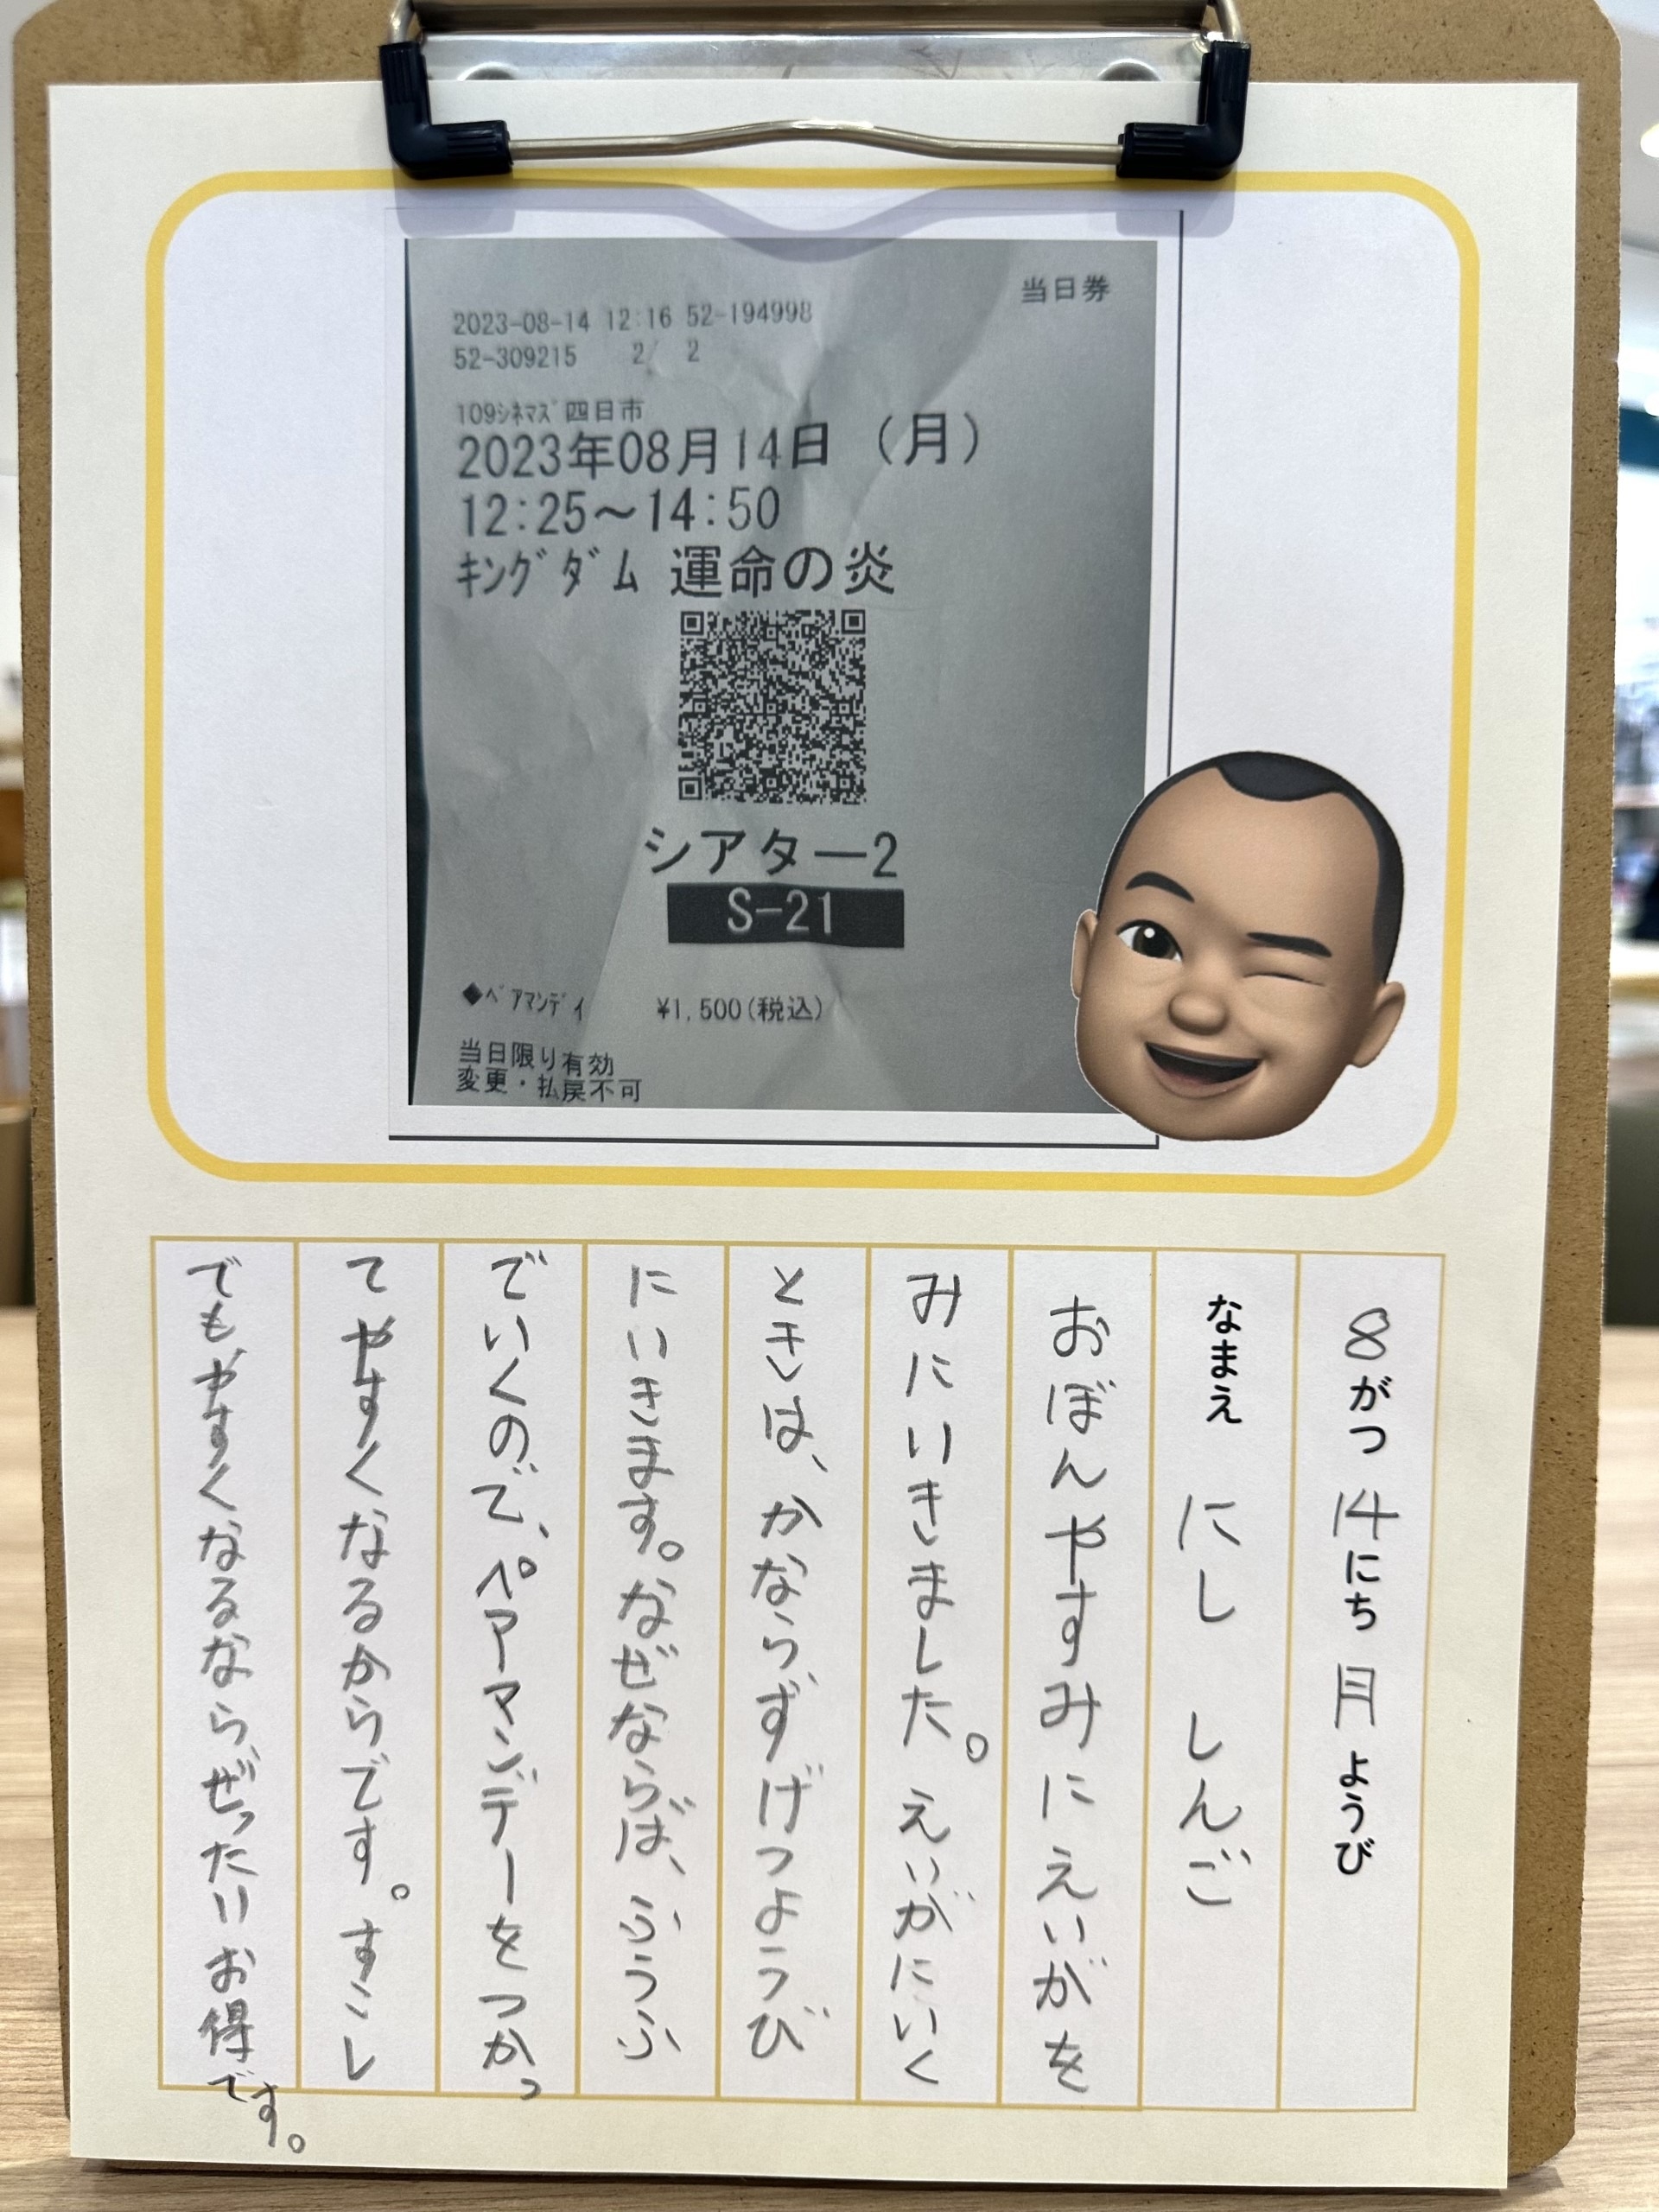 当日券
2023-08-14 12:16 52-194998
52-309215 2/ 2
109シネマズ四日市
2023年08月14日（月）
12:25～14:50
キングダム 運命の炎
シアター2
S-21
◆ペアマンデイ ¥1,500(税込)
当日限り有効
変更・払戻不可
8がつ 14にち 月 ようび
なまえ にし しんご
おぼんやすみにえいがを
みにいきました。えいがにいく
ときは、かならずげつようび
にいきます。なぜならば、ふうふ
でいくので、ペアマンデーをつかっ
てやすくなるからです。すこし
でもやすくなるならぜったいお得です。